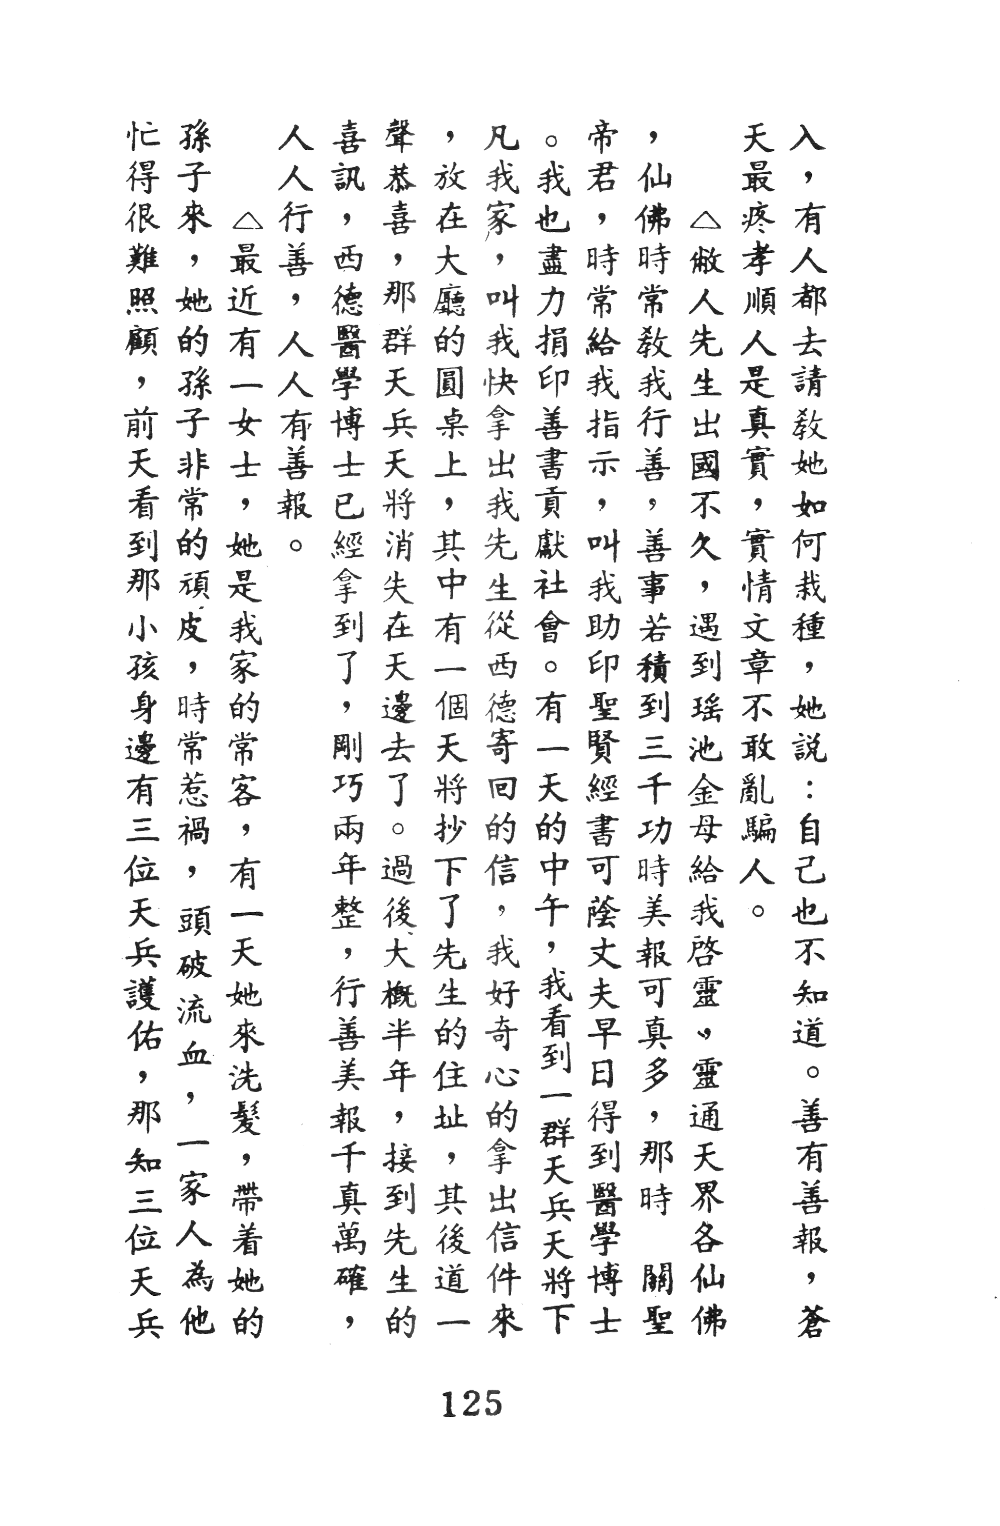 入，有人都去請教她如何栽種，她說：自己也不知道。善有善報，蒼
天最疼孝順人是真實，實情文章不敢亂騙人。
△敝人先生出國不久，遇到瑤池金母給我啓靈，靈通天界各仙佛
，仙佛時常教我行善，善事若積到三千功時美報可真多，那時　關聖
帝君，時常給我指示，叫我助印聖賢經書可蔭丈夫早日得到醫學博士
。我也盡力捐印善書貢獻社會。有一天的中午，我看到一群天兵天將下
凡我家，叫我快拿出我先生從西德寄回的信，我好奇心的拿出信件來
，放在大廳的圓桌上，其中有一個天將抄下了先生的住址，其後道一
聲恭喜，那群天兵天將消失在天邊去了。過後大概半年，接到先生的
喜訊，西德醫學博士已經拿到了，剛巧兩年整，行善美報千真萬確，
人人行善，人人有善報。
△最近有一女士，她是我家的常客，有一天她來洗髮，帶着她的
孫子來，她的孫子非常的頑皮，時常惹禍，頭破流血，一家人為他
忙得很難照顧，前天看到那小孩身邊有三位天兵護佑，那知三位天兵
125